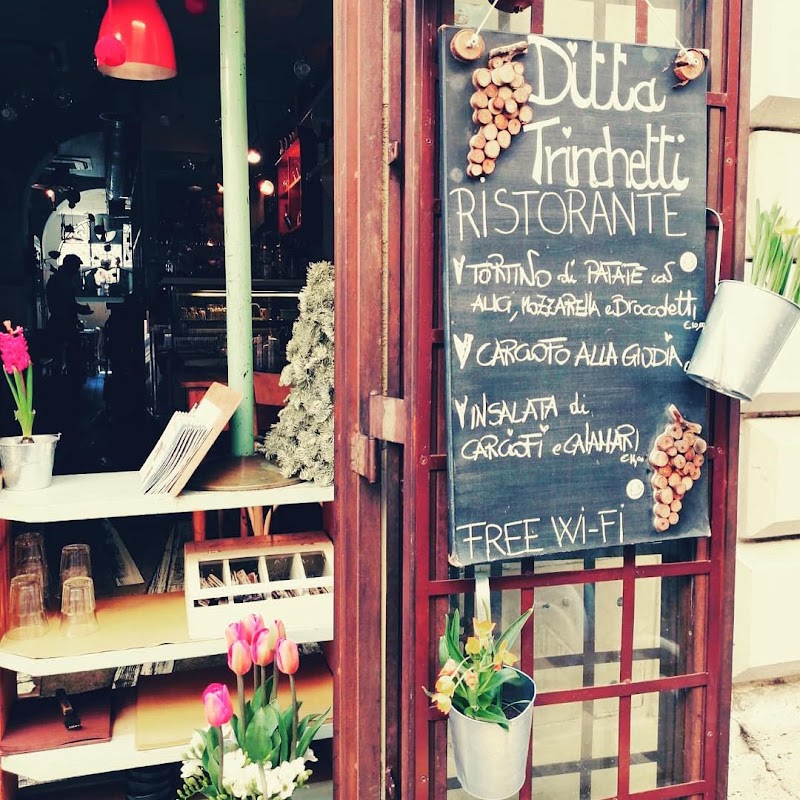 Ditta
Trinchetti
RISTORANTE
TORTINO di PATATE con
ALICI, MOZZARELLA e BROCCOLETTI
CARCIOFO ALLA GIUDIA
INSALATA di
CARCIOFI e CALAMARI
FREE Wi-Fi